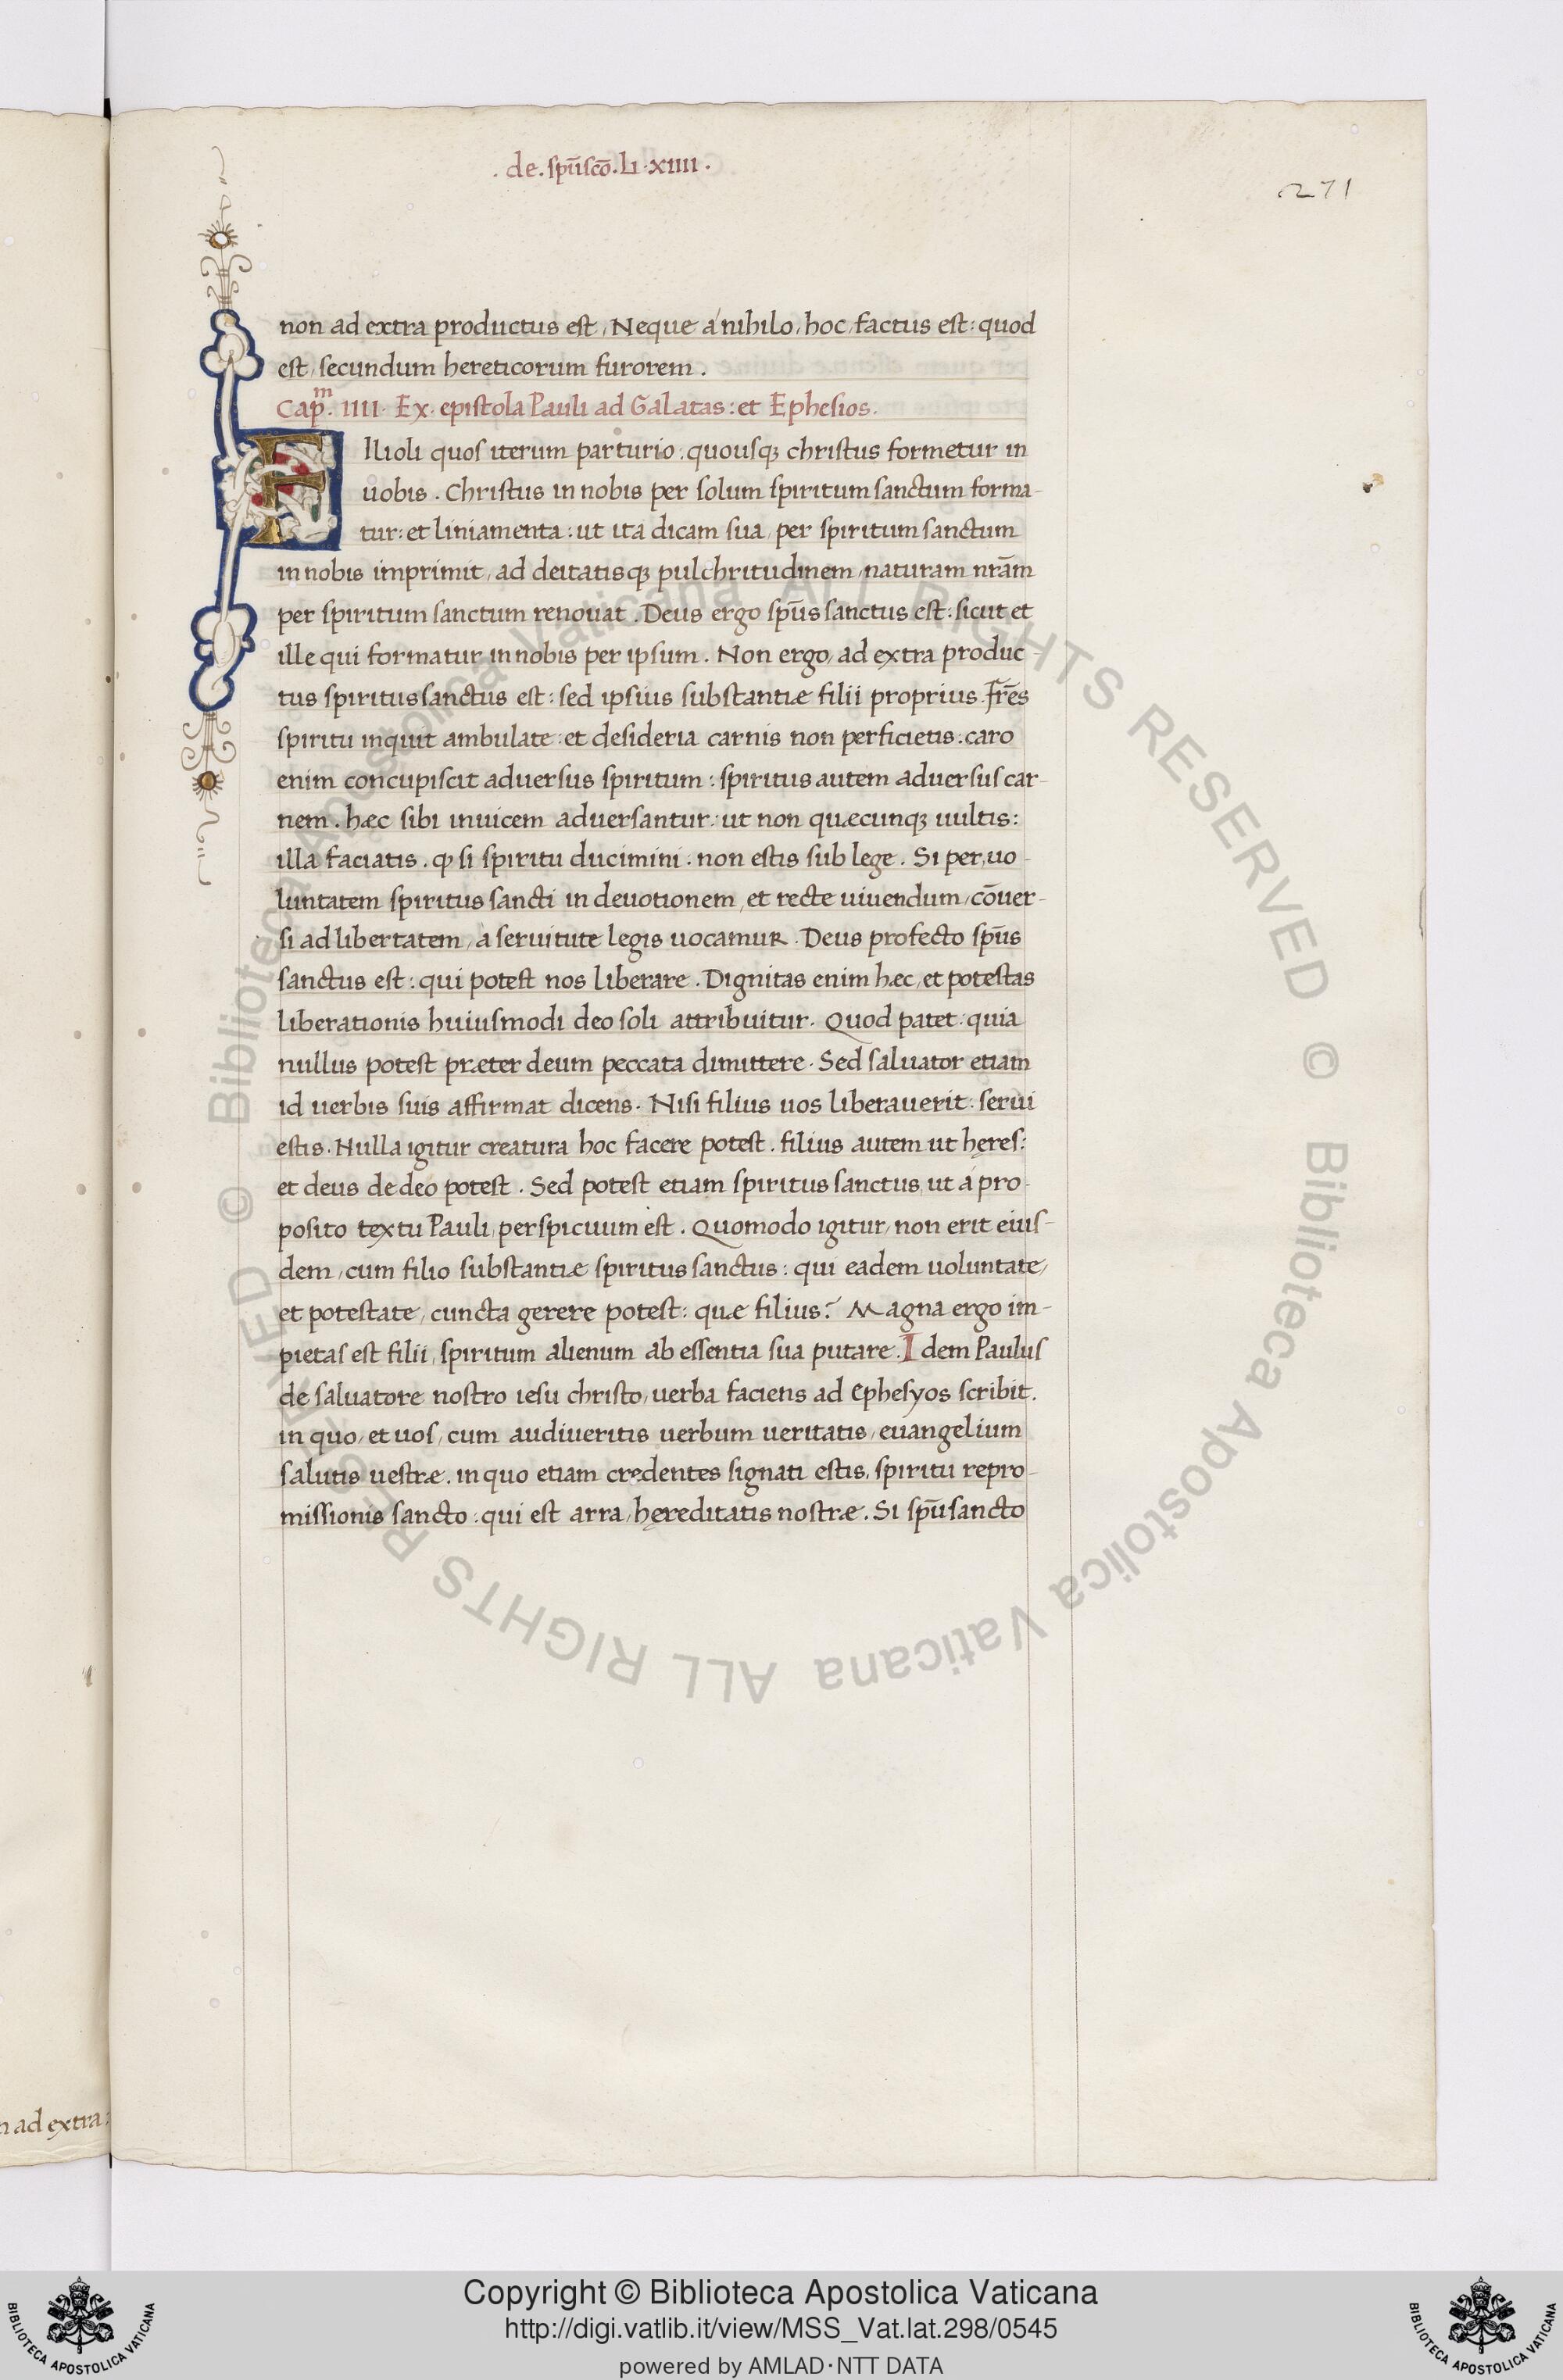 . de . spūscō . Li . xiiii .
271
non ad extra productus est, Neque a nihilo, hoc, factus est: quod
est, secundum hereticorum furorem .
Cap.m iiii. Ex. epistola Pauli ad Galatas: et Ephesios.
Filioli quos iterum parturio . quousq; christus formetur in
uobis . Christus in nobis per solum spiritum sanctum forma-
tur: et liniamenta: ut ita dicam sua, per spiritum sanctum
in nobis imprimit, ad deitatisq; pulchritudinem, naturam nrām
per spiritum sanctum renouat . Deus ergo spūs sanctus est: sicut et
ille qui formatur in nobis per ipsum . Non ergo, ad extra produc-
tus spiritus sanctus est: sed ipsius substantiæ filii proprius . frēs
spiritu inquit ambulate: et desideria carnis non perficietis . caro
enim concupiscit aduersus spiritum: spiritus autem aduersus car-
nem . hæc sibi inuicem aduersantur: ut non quæcunq; uultis:
illa faciatis . ꝙ si spiritu ducimini . non estis sub lege . Si per, uo-
luntatem spiritus sancti in deuotionem, et recte uiuendum, cōuer-
si ad libertatem, a seruitute legis uocamur . Deus profecto spūs
sanctus est: qui potest nos liberare . Dignitas enim hæc, et potestas
liberationis huiusmodi deo soli attribuitur . Quod patet: quia
nullus potest præter deum peccata dimittere . Sed saluator etiam
id uerbis suis affirmat dicens . Nisi filius uos liberauerit: serui
estis . Nulla igitur creatura hoc facere potest . filius autem ut hęres:
et deus de deo potest . Sed potest etiam spiritus sanctus, ut a pro-
posito textu Pauli, perspicuum est . Quomodo igitur, non erit eius-
dem, cum filio substantiæ spiritus sanctus: qui eadem uoluntate,
et potestate, cuncta gerere potest: quæ filius? Magna ergo im-
pietas est filii, spiritum alienum ab essentia sua putare . Idem Paulus
de saluatore nostro iesu christo, uerba faciens ad Ephesyos scribit .
in quo, et uos, cum audiueritis uerbum ueritatis, euangelium
salutis uestræ . in quo etiam credentes signati estis, spiritu repro-
missionis sancto: qui est arra, hęreditatis nostræ . Si spū sancto
ad extra:
© Biblioteca Apostolica Vaticana ALL RIGHTS RESERVED © Biblioteca Apostolica Vaticana ALL RIGHTS RESERVED
Copyright © Biblioteca Apostolica Vaticana
http://digi.vatlib.it/view/MSS_Vat.lat.298/0545
powered by AMLAD·NTT DATA
BIBLIOTECA APOSTOLICA VATICANA
BIBLIOTECA APOSTOLICA VATICANA